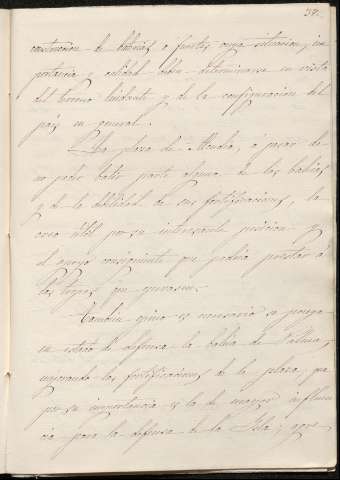 37.
construccion de baterias ó fuertes cuya situacion, im
portancia y calidad debe determinarse en vista
del terreno lindante y de la configuracion del
pais en general.
La plaza de Alcudia, á pesar de
no poder batir parte alguna de las bahías
y de la debilidad de sus fortificaciones, la
creo útil por su interesante posicion y
el apoyo consiguiente que podria prestar á
las tropas que
Tambien opino es necesario se ponga
en estado de defensa la bahia de Palma,
mejorando las fortificaciones de la plaza que
por su importancia es la de mayor influen
cia para la defensa de la Isla; y que